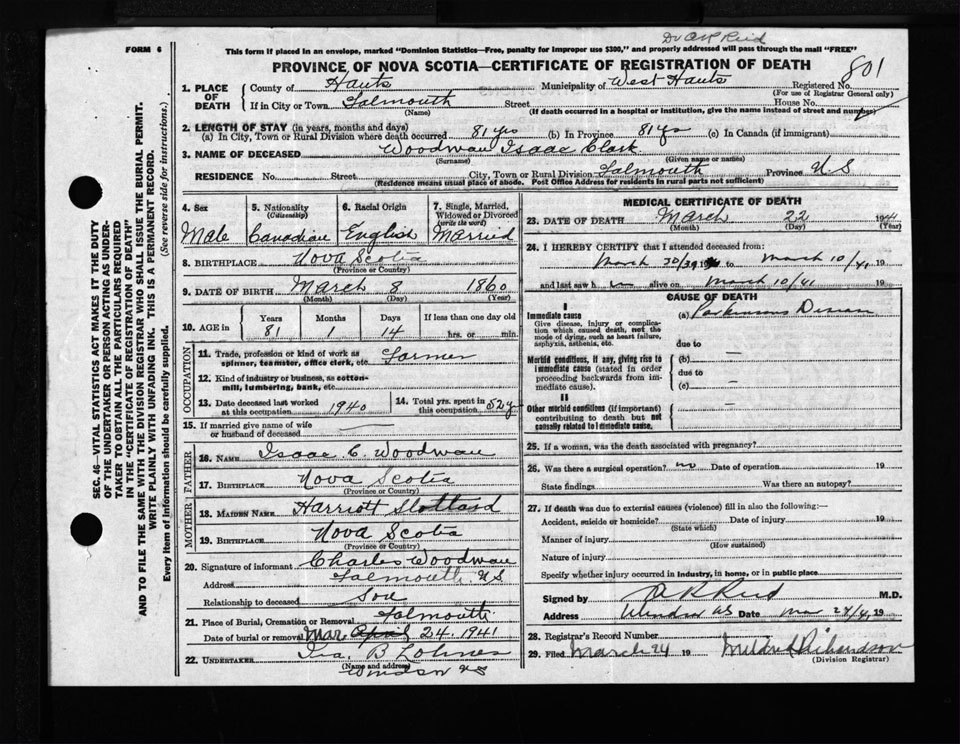 Dr A R Reid
FORM 6
This form if placed in an envelope, marked "Dominion Statistics—Free, penalty for improper use $300," and properly addressed will pass through the mail "FREE"
PROVINCE OF NOVA SCOTIA—CERTIFICATE OF REGISTRATION OF DEATH
801
1. PLACE OF DEATH County of Hants Municipality of West Hants Registered No.
(For use of Registrar General only)
If in City or Town Falmouth Street House No.
(Name) (If death occurred in a hospital or institution, give the name instead of street and number)
2. LENGTH OF STAY (in years, months and days)
(a) In City, Town or Rural Division where death occurred 81 yrs (b) In Province 81 yrs (c) In Canada (if immigrant)
3. NAME OF DECEASED Woodman Isaac Clark
(Surname) (Given name or names)
RESIDENCE No. Street City, Town or Rural Division Falmouth Province N S
(Residence means usual place of abode. Post Office Address for residents in rural parts not sufficient)
4. Sex Male
5. Nationality (Citizenship) Canadian
6. Racial Origin English
7. Single, Married, Widowed or Divorced (write the word) Married
8. BIRTHPLACE Nova Scotia
(Province or Country)
9. DATE OF BIRTH March 8 1860
(Month) (Day) (Year)
10. AGE in Years Months Days If less than one day old
81 1 14 hrs. or min.
OCCUPATION
11. Trade, profession or kind of work as spinner, teamster, office clerk, etc. Farmer
12. Kind of industry or business, as cotton-mill, lumbering, bank, etc.
13. Date deceased last worked at this occupation 1940
14. Total yrs. spent in this occupation 52 y
15. If married give name of wife or husband of deceased
FATHER
16. NAME Isaac C. Woodman
17. BIRTHPLACE Nova Scotia
(Province or Country)
MOTHER
18. MAIDEN NAME Harriott
19. BIRTHPLACE Nova Scotia
(Province or Country)
20. Signature of informant Charles Woodman
Address Falmouth N.S.
Relationship to deceased Son
21. Place of Burial, Cremation or Removal Falmouth
Date of burial or removal Mar. April 24. 1941
22. UNDERTAKER Ira. B Lohnes
(Name and address)
Windsor N S
MEDICAL CERTIFICATE OF DEATH
23. DATE OF DEATH March 22 1941
(Month) (Day) (Year)
24. I HEREBY CERTIFY that I attended deceased from:
March 30/39 19 to March 10/41 19
and last saw h alive on March 10/41 19
CAUSE OF DEATH
I
Immediate cause
Give disease, injury or complication which caused death, not the mode of dying, such as heart failure, asphyxia, asthenia, etc.
(a) Parkinsons Disease
due to
Morbid conditions, if any, giving rise to immediate cause (stated in order proceeding backwards from immediate cause).
(b) —
due to
(c) —
II
Other morbid conditions (if important) contributing to death but not causally related to immediate cause.
—
25. If a woman, was the death associated with pregnancy?
26. Was there a surgical operation? no Date of operation 19
State findings Was there an autopsy?
27. If death was due to external causes (violence) fill in also the following:—
Accident, suicide or homicide? Date of injury 19
(State which)
Manner of injury
(How sustained)
Nature of injury
Specify whether injury occurred in industry, in home, or in public place
Signed by A R Reid M.D.
Address Windsor NS Date Mar 24/41 19
28. Registrar's Record Number
29. Filed March 24 19 Mildred Richardson
(Division Registrar)
SEC. 46—VITAL STATISTICS ACT MAKES IT THE DUTY
OF THE UNDERTAKER OR PERSON ACTING AS UNDER-
TAKER TO OBTAIN ALL THE PARTICULARS REQUIRED
IN THE "CERTIFICATE OF REGISTRATION OF DEATH"
AND TO FILE THE SAME WITH THE DIVISION REGISTRAR WHO SHALL ISSUE THE BURIAL PERMIT.
WRITE PLAINLY WITH UNFADING INK. THIS IS A PERMANENT RECORD.
Every item of information should be carefully supplied. (See reverse side for instructions.)